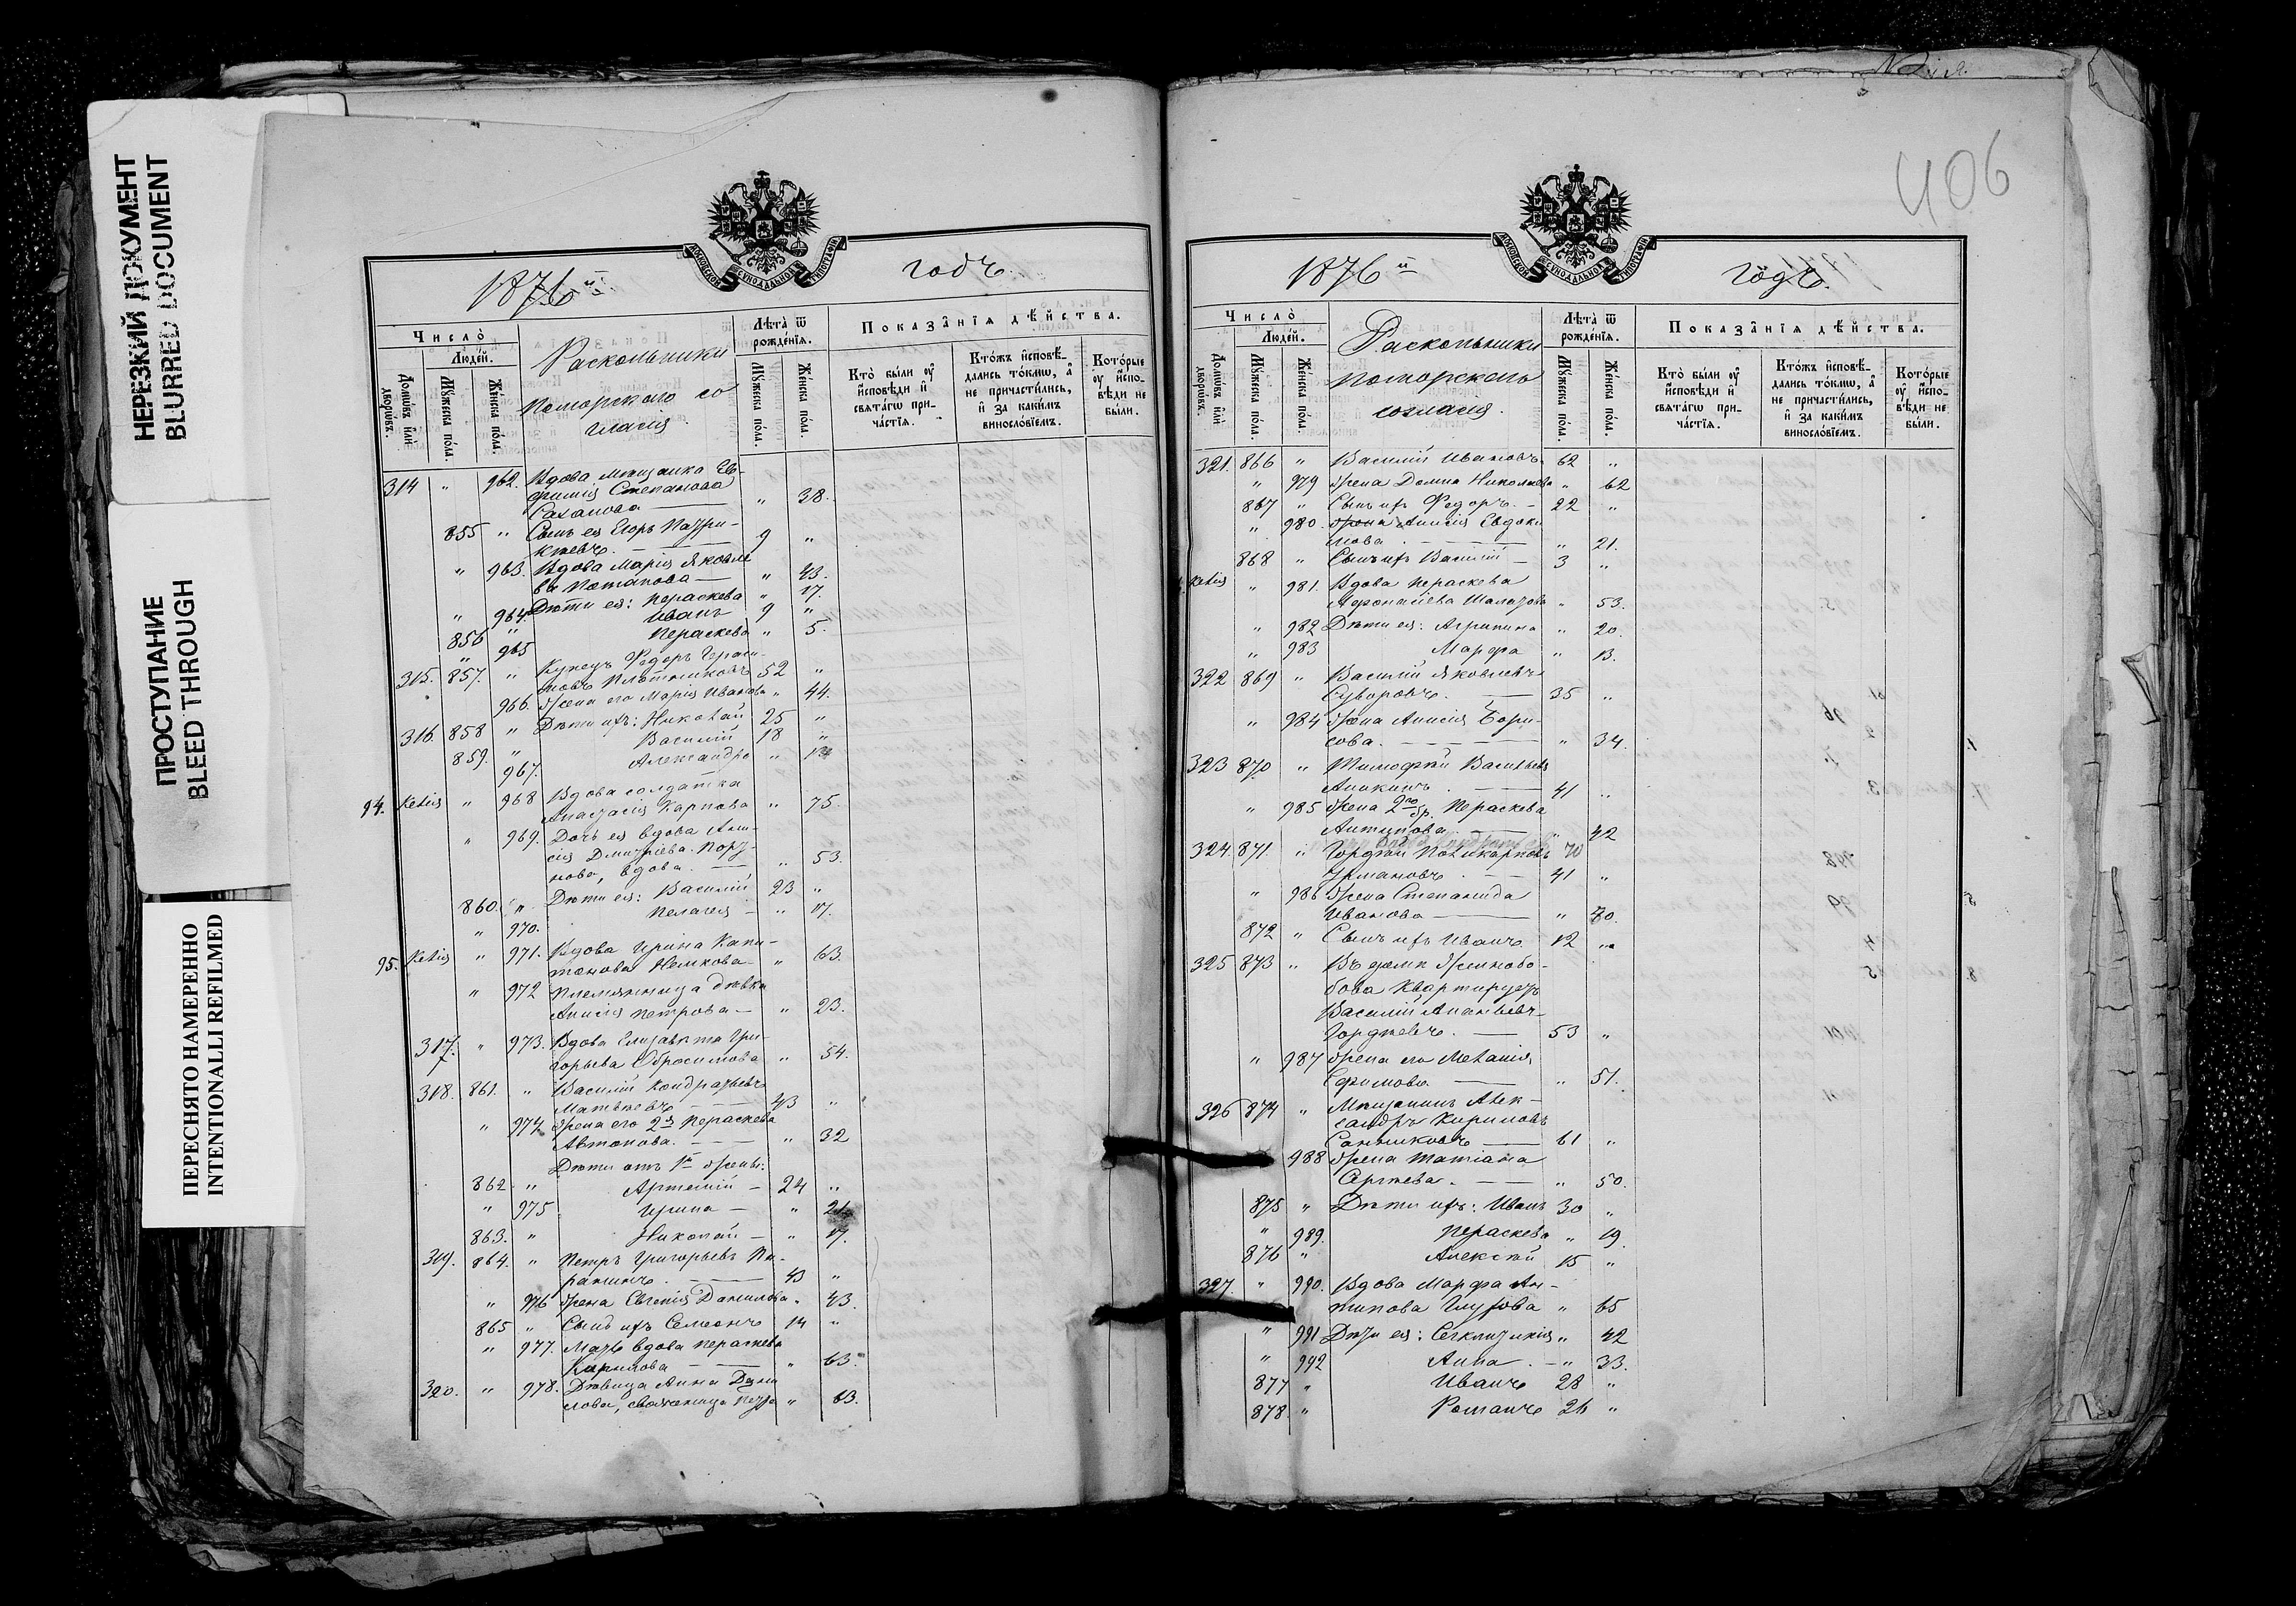 НЕРЕЗКИЙ ДОКУМЕНТ
BLURRED DOCUMENT
ПРОСТУПАНИЕ
BLEED THROUGH
ПЕРЕСНЯТО НАМЕРЕННО
INTENTIONALLI REFILMED
МОСКОВСКОЙ СѴНОДАЛЬНОЙ ТИПОГРАФІИ
1876й годъ.
Число̀
Людéй.
Домѡ́въ и҆лѝ дворѡ́въ.
Мꙋ́жеска по́ла.
Же́нска по́ла.
Раскольники
Поморскаго со
гласія.
Лѣ́та ѿ рожде́нїѧ.
Мꙋ́жеска по́ла.
Же́нска по́ла.
Показа̑нїѧ дѣ́йства.
Кто̀ бы́ли ᲂу҆ и҆сповѣ́ди и҆ свѧта́гѡ причáстїѧ.
Кто́жъ и҆сповѣ́дались то́кмѡ, а҆ не причасти́лись, и҆ за каки́мъ винослóвїемъ.
Кото́рые ᲂу҆ и҆сповѣ́ди не бы́ли.
314 " 962. Вдова мѣщанка Ев-
фимія Степанова
" 38.
855 " Сынъ ея Егоръ Патри-
кѣевъ. 9 "
" 963. Вдова Марія Яковле
ва Потапова — " 43.
" 964. Дѣти ея: Пераскева " 17.
856 " Иванъ 9 "
" 965 Пераскева " 5.
315. 857. " Купецъ Федоръ Гераси-
мовъ Плотниковъ 52 "
966. Жена его Марія Иванова " 44.
316. 858 " Дѣти ихъ: Николай 25 "
859. " Василій 18 "
967. Александра "
94. Келія " 968 Вдова солдатка
Анастасія Карпова " 75.
" 969. Дочь ея вдова Ани-
сія Дмитріева
нова, вдова. — " 53.
860. " Дѣти ея: Василій 23 "
" 970. Пелагея — " 17.
95. Келія " 971. Вдова Ирина Капи-
тонова Немкова — " 63.
" 972 Племянница дѣвка
Анисія Петрова — " 23.
317. " 973. Вдова Елизавета Гри-
горьева Абросимова " 54.
318. 861. " Василій Кондратьевъ
Матвѣевъ — 43 "
" 974. Жена его 2я Пераскева
Автонова. — " 32
Дѣти отъ 1й жены:
862 " Артемій — 24 "
" 975 Ирина — " 21
863. " Николай — " 17.
319. 864. " Петръ Григорьевъ
43 "
" 976 Жена Евгенія Данилова " 43.
865 " Сынъ ихъ Семеонъ 14 "
" 977. Мать вдова Пераскева
Кирилова — " 63.
320. " 978. Дѣвица Анна Дани
лова, " 63.
406
МОСКОВСКОЙ СѴНОДАЛЬНОЙ ТИПОГРАФІИ
1876й годъ.
Число̀
Людéй.
Домѡ́въ и҆лѝ дворѡ́въ.
Мꙋ́жеска по́ла.
Же́нска по́ла.
Раскольники
поморскаго
согласія.
Лѣ́та ѿ рожде́нїѧ.
Мꙋ́жеска по́ла.
Же́нска по́ла.
Показа̑нїѧ дѣ́йства.
Кто̀ бы́ли ᲂу҆ и҆сповѣ́ди и҆ свѧта́гѡ причáстїѧ.
Кто́жъ и҆сповѣ́дались то́кмѡ, а҆ не причасти́лись, и҆ за каки́мъ винослóвїемъ.
Кото́рые ᲂу҆ и҆сповѣ́ди не бы́ли.
321. 866 " Василій Ивановъ 62 "
" 979 Жена Домна Николаева " 62
867 " Сынъ ихъ Федоръ. — 22 "
" 980. Жена Анисія Евдоки
мова. — " 21.
868 " Сынъ ихъ Василій — 3 "
Келія " 981. Вдова Пераскева
Афонасіева " 53.
" 982 Дѣти ея: Агрипина " 20.
" 983 Марфа " 13.
322 869 " Василій Яковлевъ
Суворовъ. — 35 "
" 984 Жена Анисія Бори-
сова. — " 34.
323 870 " Тимофѣй Васильевъ
Аникинъ. — 41 "
" 985 Жена 2го бр. Пераскева
Антипова. — " 42
324. 871. " Гордѣй Поликарповъ 70
Урмановъ. — 41 "
" 986 Жена Степанида
Иванова — " 40.
872 " Сынъ ихъ Иванъ. 12 "
325 873 " Въ домѣ
бова квартируетъ
Василій Ананьевъ
Гордѣевъ. — 53 "
" 987 Жена его Меланія
Ефимова — " 51.
326 874 " Мѣщанинъ Алек-
сандръ Кириловъ
Санниковъ — 61 "
988 Жена Татіана
Сергѣева. — " 50.
875 " Дѣти ихъ: Иванъ 30 "
" 989. Пераскева " 19.
876 " Алексѣй 15 "
327. " 990. Вдова Марфа Ан-
типова " 65
" 991 Дѣти ея: Секлитикія " 42
" 992 Анна. — " 33.
877 " Иванъ 28 "
878. " Романъ 26 "